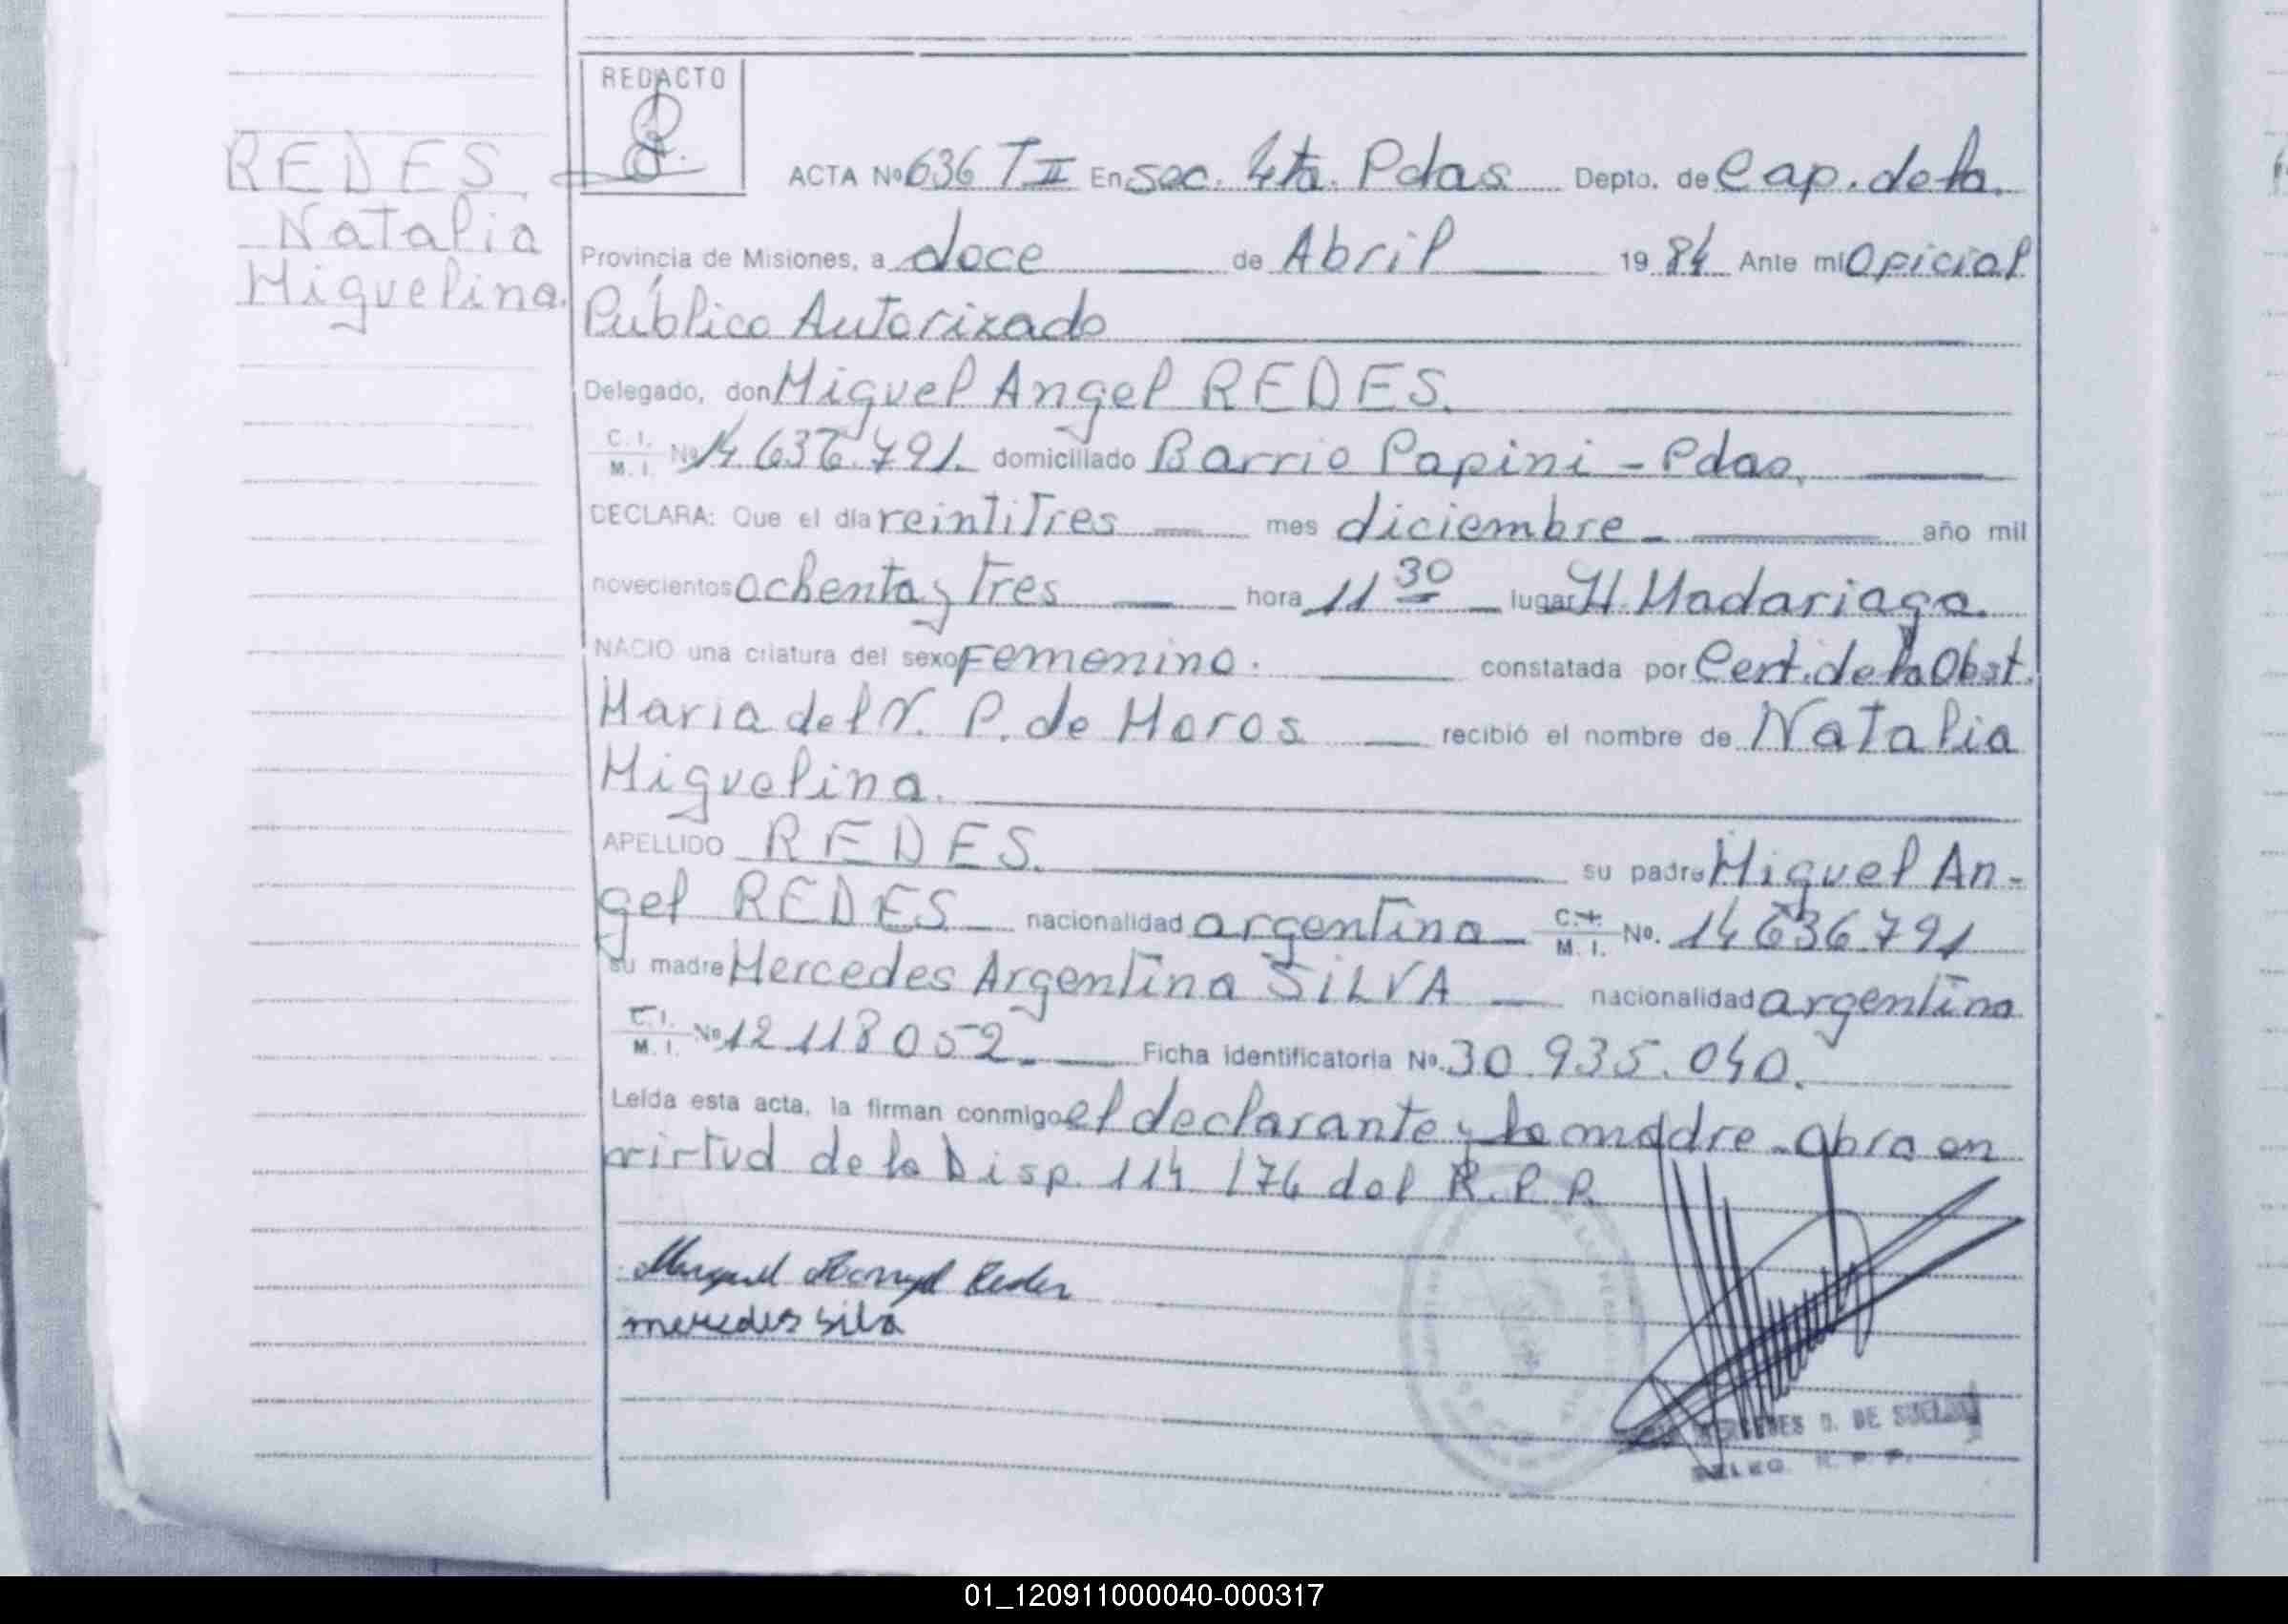 REDACTO
REDES
Natalia
Miguelina.
ACTA Nº 636 T II En Sec. 4ta. Pdas Depto. de Cap. de la
Provincia de Misiones, a doce de Abril 19 84 Ante mi Oficial
Público Autorizado
Delegado, don Miguel Angel REDES.
C. I. M. I. Nº 14.636.791. domiciliado Barrio Papini - Pdas,
DECLARA: Que el día veintitres mes diciembre año mil
novecientos ochenta y tres hora 11 30 lugar H. Madariaga.
NACIO una criatura del sexo Femenino. constatada por Cert. de la Obst.
Maria del V. P. de Moros recibió el nombre de Natalia
Miguelina.
APELLIDO REDES. su padre Miguel An-
gel REDES nacionalidad argentina C. I. M. I. Nº. 14636.791
su madre Mercedes Argentina SILVA nacionalidad argentina
C. I. M. I. Nº 12.118.052. Ficha identificatoria Nº. 30.935.040.
Leída esta acta, la firman conmigo el declarante y la madre - Obra en
virtud de la Disp. 114/76 del R.P.P.
Miguel Angel Redes
mercedes silva
MERCEDES O. DE
DELEG. R. P. P.
01_120911000040-000317